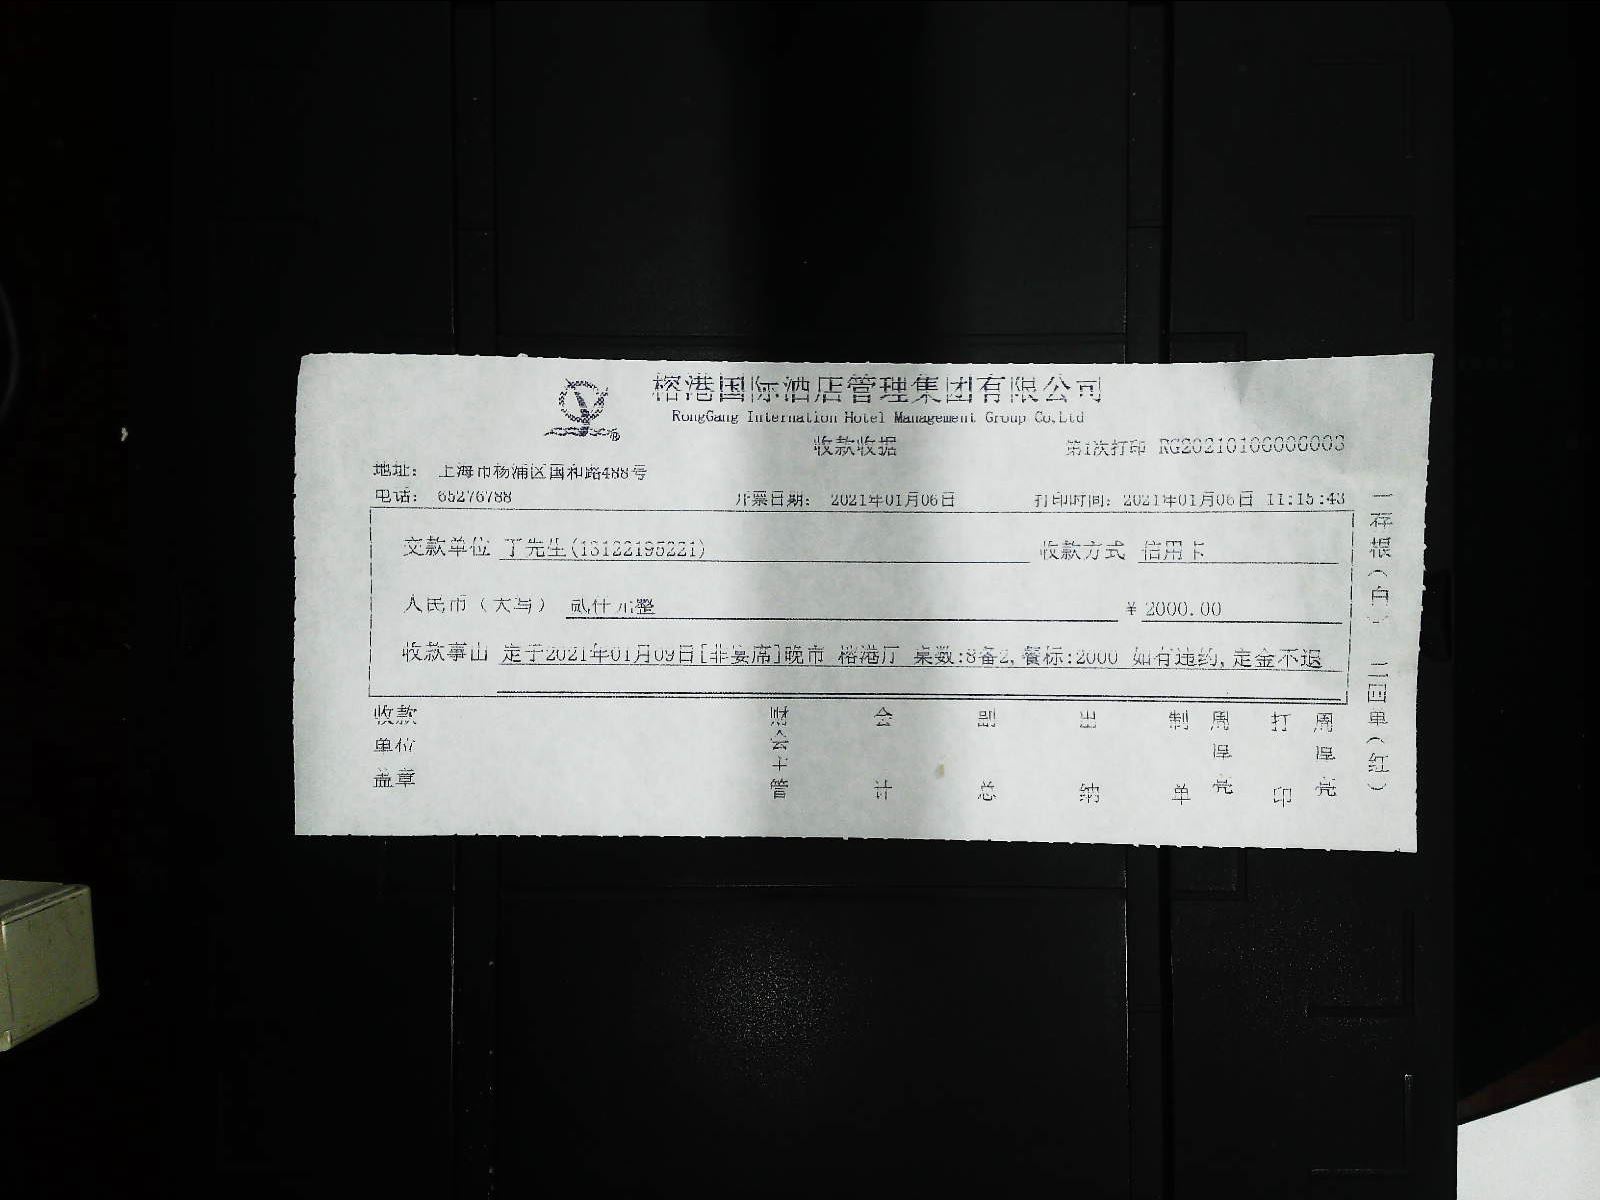 榕港国际酒店管理集团有限公司
RongGang Internation Hotel Management Group Co,Ltd
收款收据
第1次打印 RG20210106000003
地址： 上海市杨浦区国和路488号
电话： 65276788 开票日期： 2021年01月06日 打印时间：2021年01月06日 11:15:43
交款单位 丁先生(13122195221) 收款方式 信用卡
人民币（大写） 贰仟元整 ¥ 2000.00
收款事由 定于2021年01月09日[非宴席]晚市 榕港厅 桌数:8备2,餐标:2000 如有违约,定金不退
收款单位盖章 财会主管 会计 副总 出纳 制单 周厚亮 打印 周厚亮
一存根（白） 二回单（红）